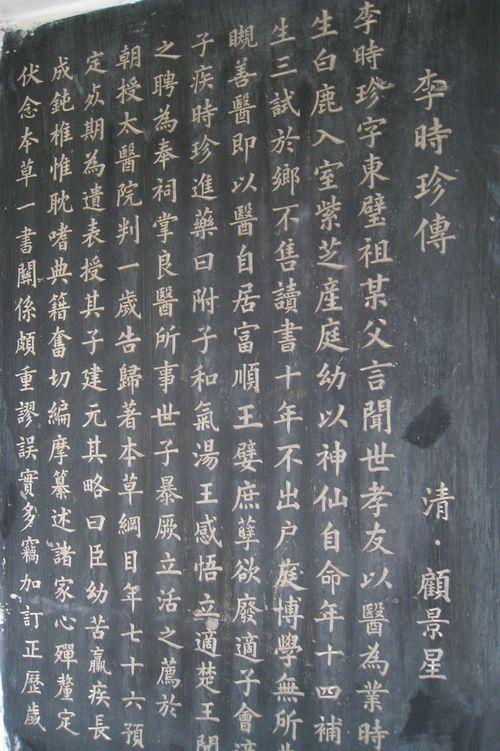 李時珍傳 清·顧景星
李時珍字東璧祖某父言聞世孝友以醫為業時
生白鹿入室紫芝産庭幼以神仙自命年十四補
生三試於鄉不售讀書十年不出户庭博學無所
瞡善醫即以醫自居富順王嬖庶孽欲廢適子會
子疾時珍進藥曰附子和氣湯王感悟立適楚王聞
之聘為奉祠掌良醫所事世子暴厥立活之薦於
朝授太醫院判一歲告歸著本草綱目年七十六預
定死期為遺表授其子建元其略曰臣幼苦羸疾長
成鈍椎惟耽嗜典籍奮切編摩纂述諸家心殫釐定
伏念本草一書關係頗重謬誤實多竊加訂正歷歲